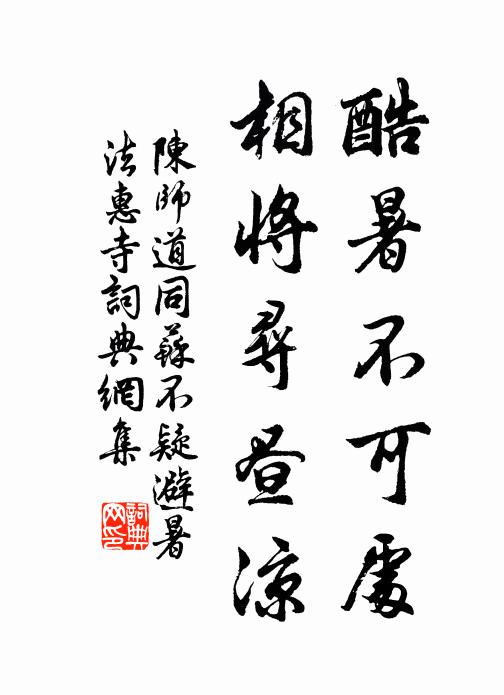 酷暑不可處
相將尋晝涼
陳師道同蘇不疑避暑
法惠寺詞典網集
詞典
网印